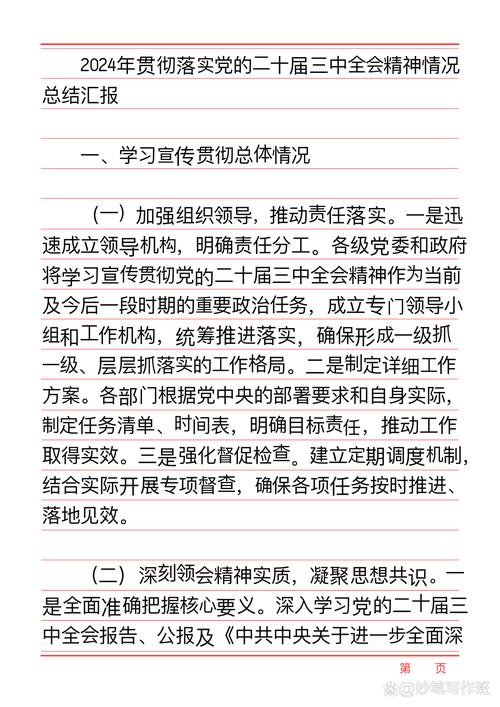 2024年贯彻落实党的二十届三中全会精神情况
总结汇报
一、学习宣传贯彻总体情况
（一）加强组织领导，推动责任落实。一是迅
速成立领导机构，明确责任分工。各级党委和政府
将学习宣传贯彻党的二十届三中全会精神作为当前
及今后一段时期的重要政治任务，成立专门领导小
组和工作机构，统筹推进落实，确保形成一级抓
一级、层层抓落实的工作格局。二是制定详细工作
方案。各部门根据党中央的部署要求和自身实际，
制定任务清单、时间表，明确目标责任，推动工作
取得实效。三是强化督促检查。建立定期调度机制，
结合实际开展专项督查，确保各项任务按时推进、
落地见效。
（二）深刻领会精神实质，凝聚思想共识。一
是全面准确把握核心要义。深入学习党的二十届三
中全会报告、公报及《中共中央关于进一步全面深
第 页
@妙笔写作班